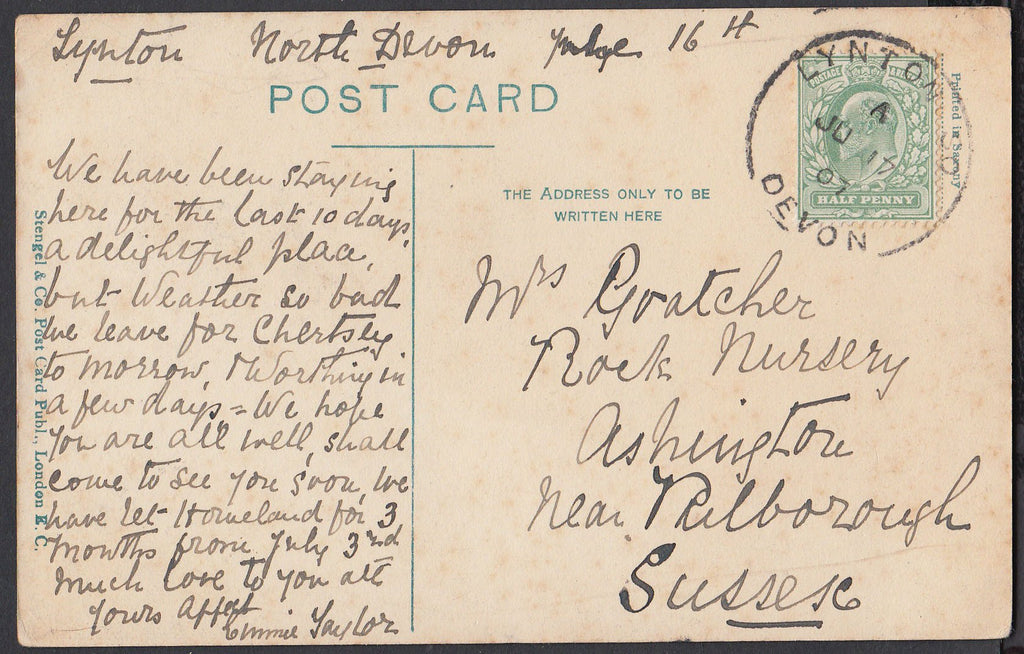 Lynton North Devon July 16th
POST CARD
We have been staying
here for the last 10 days,
a delightful place,
but Weather so bad
we leave for Chertsey
to morrow, & Worthing in
a few days = We hope
you are all well, shall
come to see you soon, we
have let Homeland for 3
months from July 3rd
much love to you all
yours affect
Emmie Taylor
Stengel & Co. Post Card Publ., London E.C.
THE ADDRESS ONLY TO BE
WRITTEN HERE
Mrs Goatcher
Rock Nursery
Ashington
Near Pulborough
Sussex
LYNTON
A
JU 17
07
DEVON
POSTAGE
HALF PENNY
Printed in Saxony